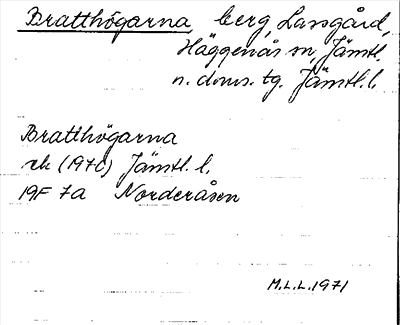 Bratthögarna, berg, Lassgård,
Häggenås sn, Jämtl.
n. doms. tg. Jämtl. l.
Bratthögarna
rk (1970) Jämtl. l.
19F 7a Norderåsen
M.L.L. 1971